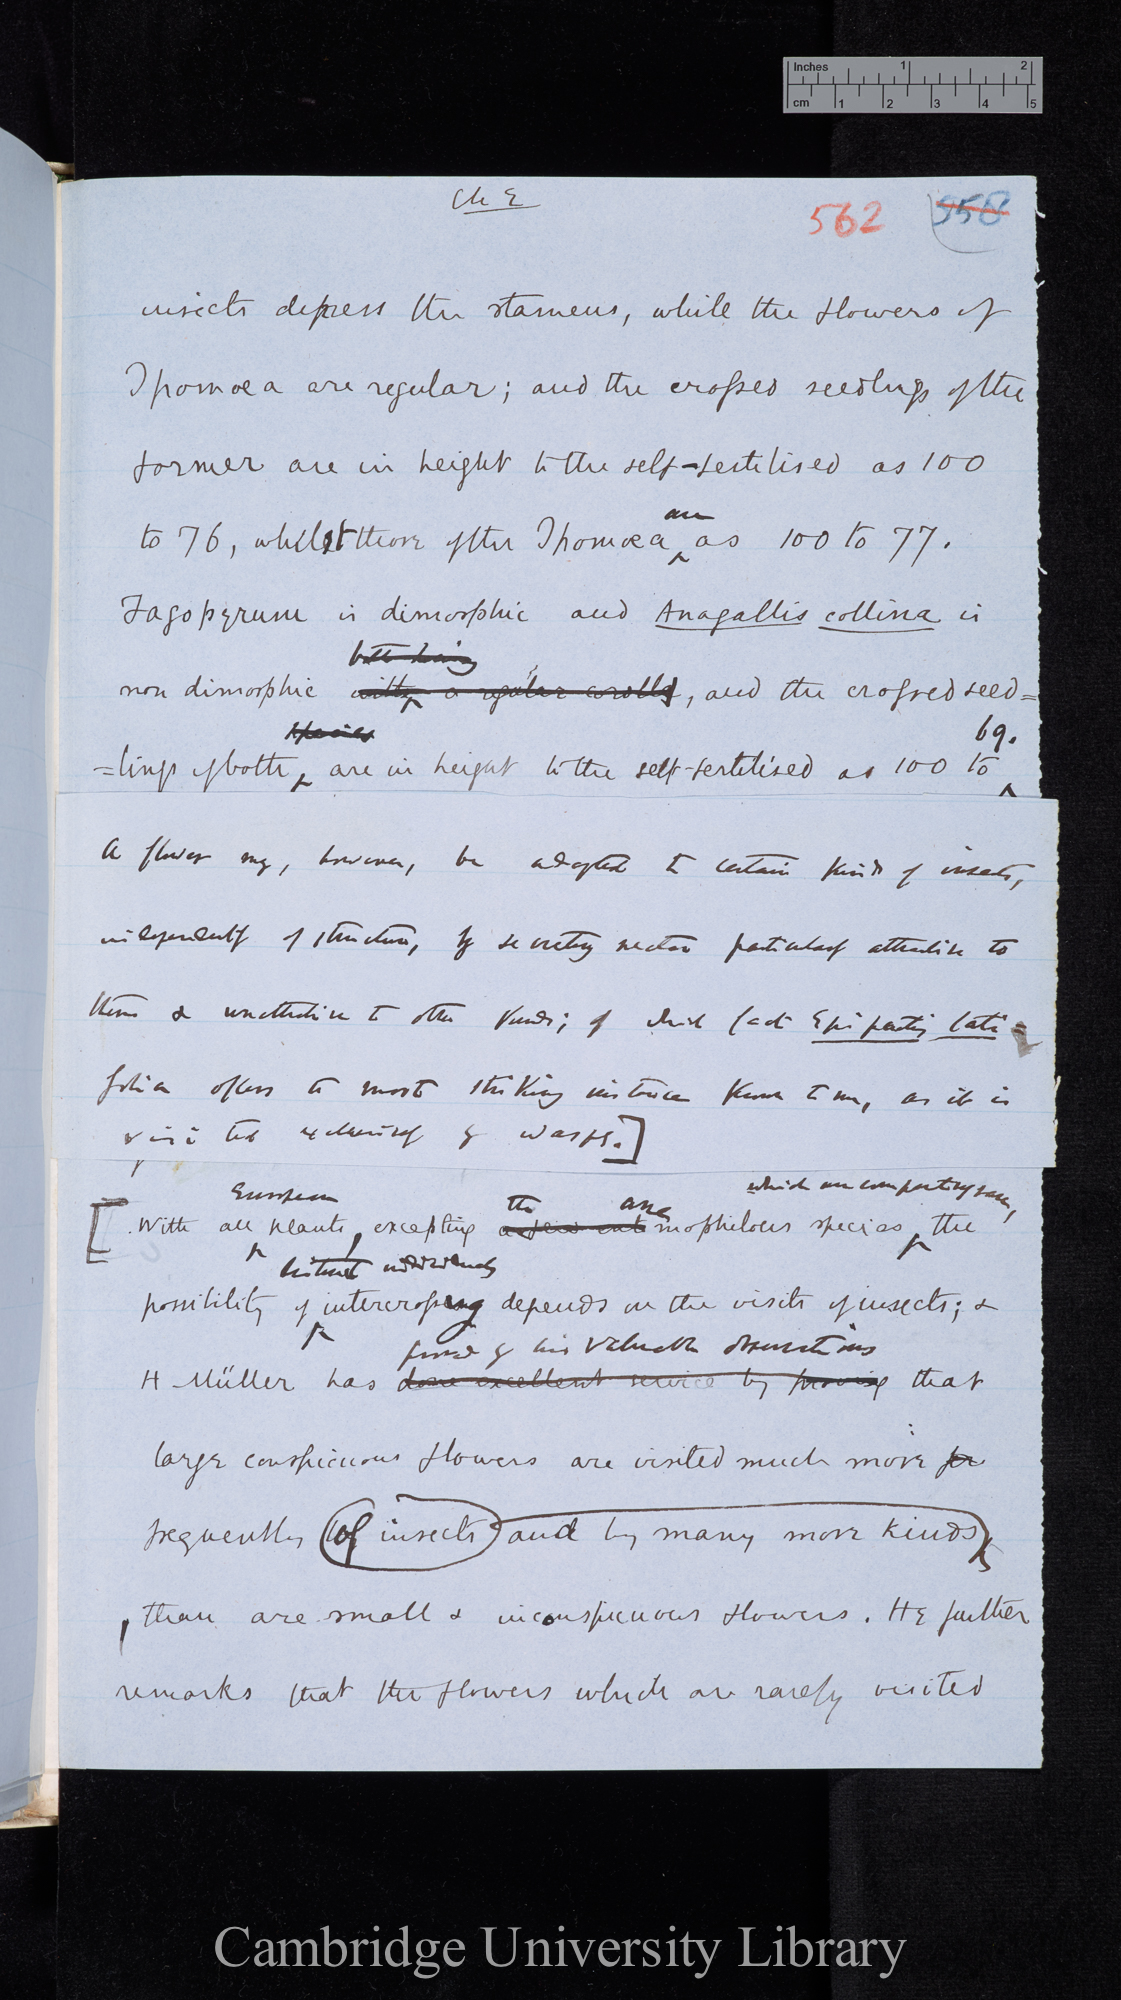 Inches 1 2
cm 1 2 3 4 5
Ch E
562 558
insects depress the stamens, while the flowers of
Ipomoea are regular; and the crossed seedlings of the
former are in height to the self-fertilised as 100
are
to 76, whilst those of the Ipomoea as 100 to 77.
Fagopyrum is dimorphic and Anagallis collina is
both having
non dimorphic with a regular corolla, and the crossed seed=
species
69.
=lings of both, are in height to the self-fertilised as 100 to
A flower may, however, be adapted to certain kinds of insects,
independently of structure, by secreting nectar particularly attractive to
them & unattractive to other kinds; of which fact Epipactis lati=
folia offers the most striking instance known to me, as it is
visited exclusively by wasps.]
European the ane which are comparatively rare,
[With all plants, excepting mophilous species, the
distinct individuals
possibility of intercrossing depends on the visits of insects; &
proved by his valuable observations
H Müller has done excellent service by proving that
large conspicuous flowers are visited much more fr
frequently by insects and by many more kinds
, than are small & inconspicuous flowers. He further
remarks that the flowers which are rarely visited
Cambridge University Library